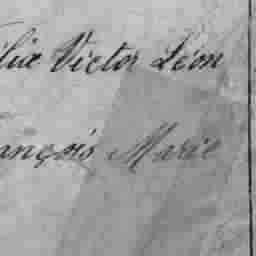 lix Victor Léon
ançois Marie